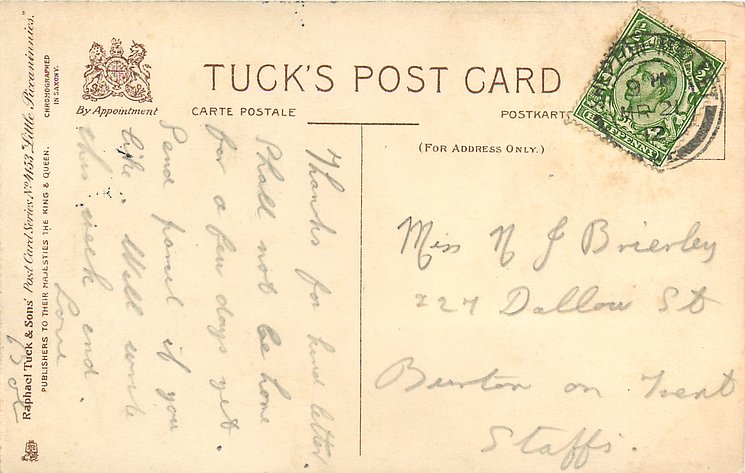 TUCK'S POST CARD
CARTE POSTALE
POSTKARTE
(FOR ADDRESS ONLY.)
By Appointment
Raphael Tuck & Sons' Post Card Series Nº 4153 "Little Piccaninnies."
PUBLISHERS TO THEIR MAJESTIES THE KING & QUEEN.
CHROMOGRAPHED
IN SAXONY.
9 PM
MR 21
12
Thanks for kind letter.
Shall not be home
for a few days yet.
Send parcel if you
like. Will write
this week end.
Love
Miss N J Brierley
227 Dallow St
Burton on Trent
Staffs.